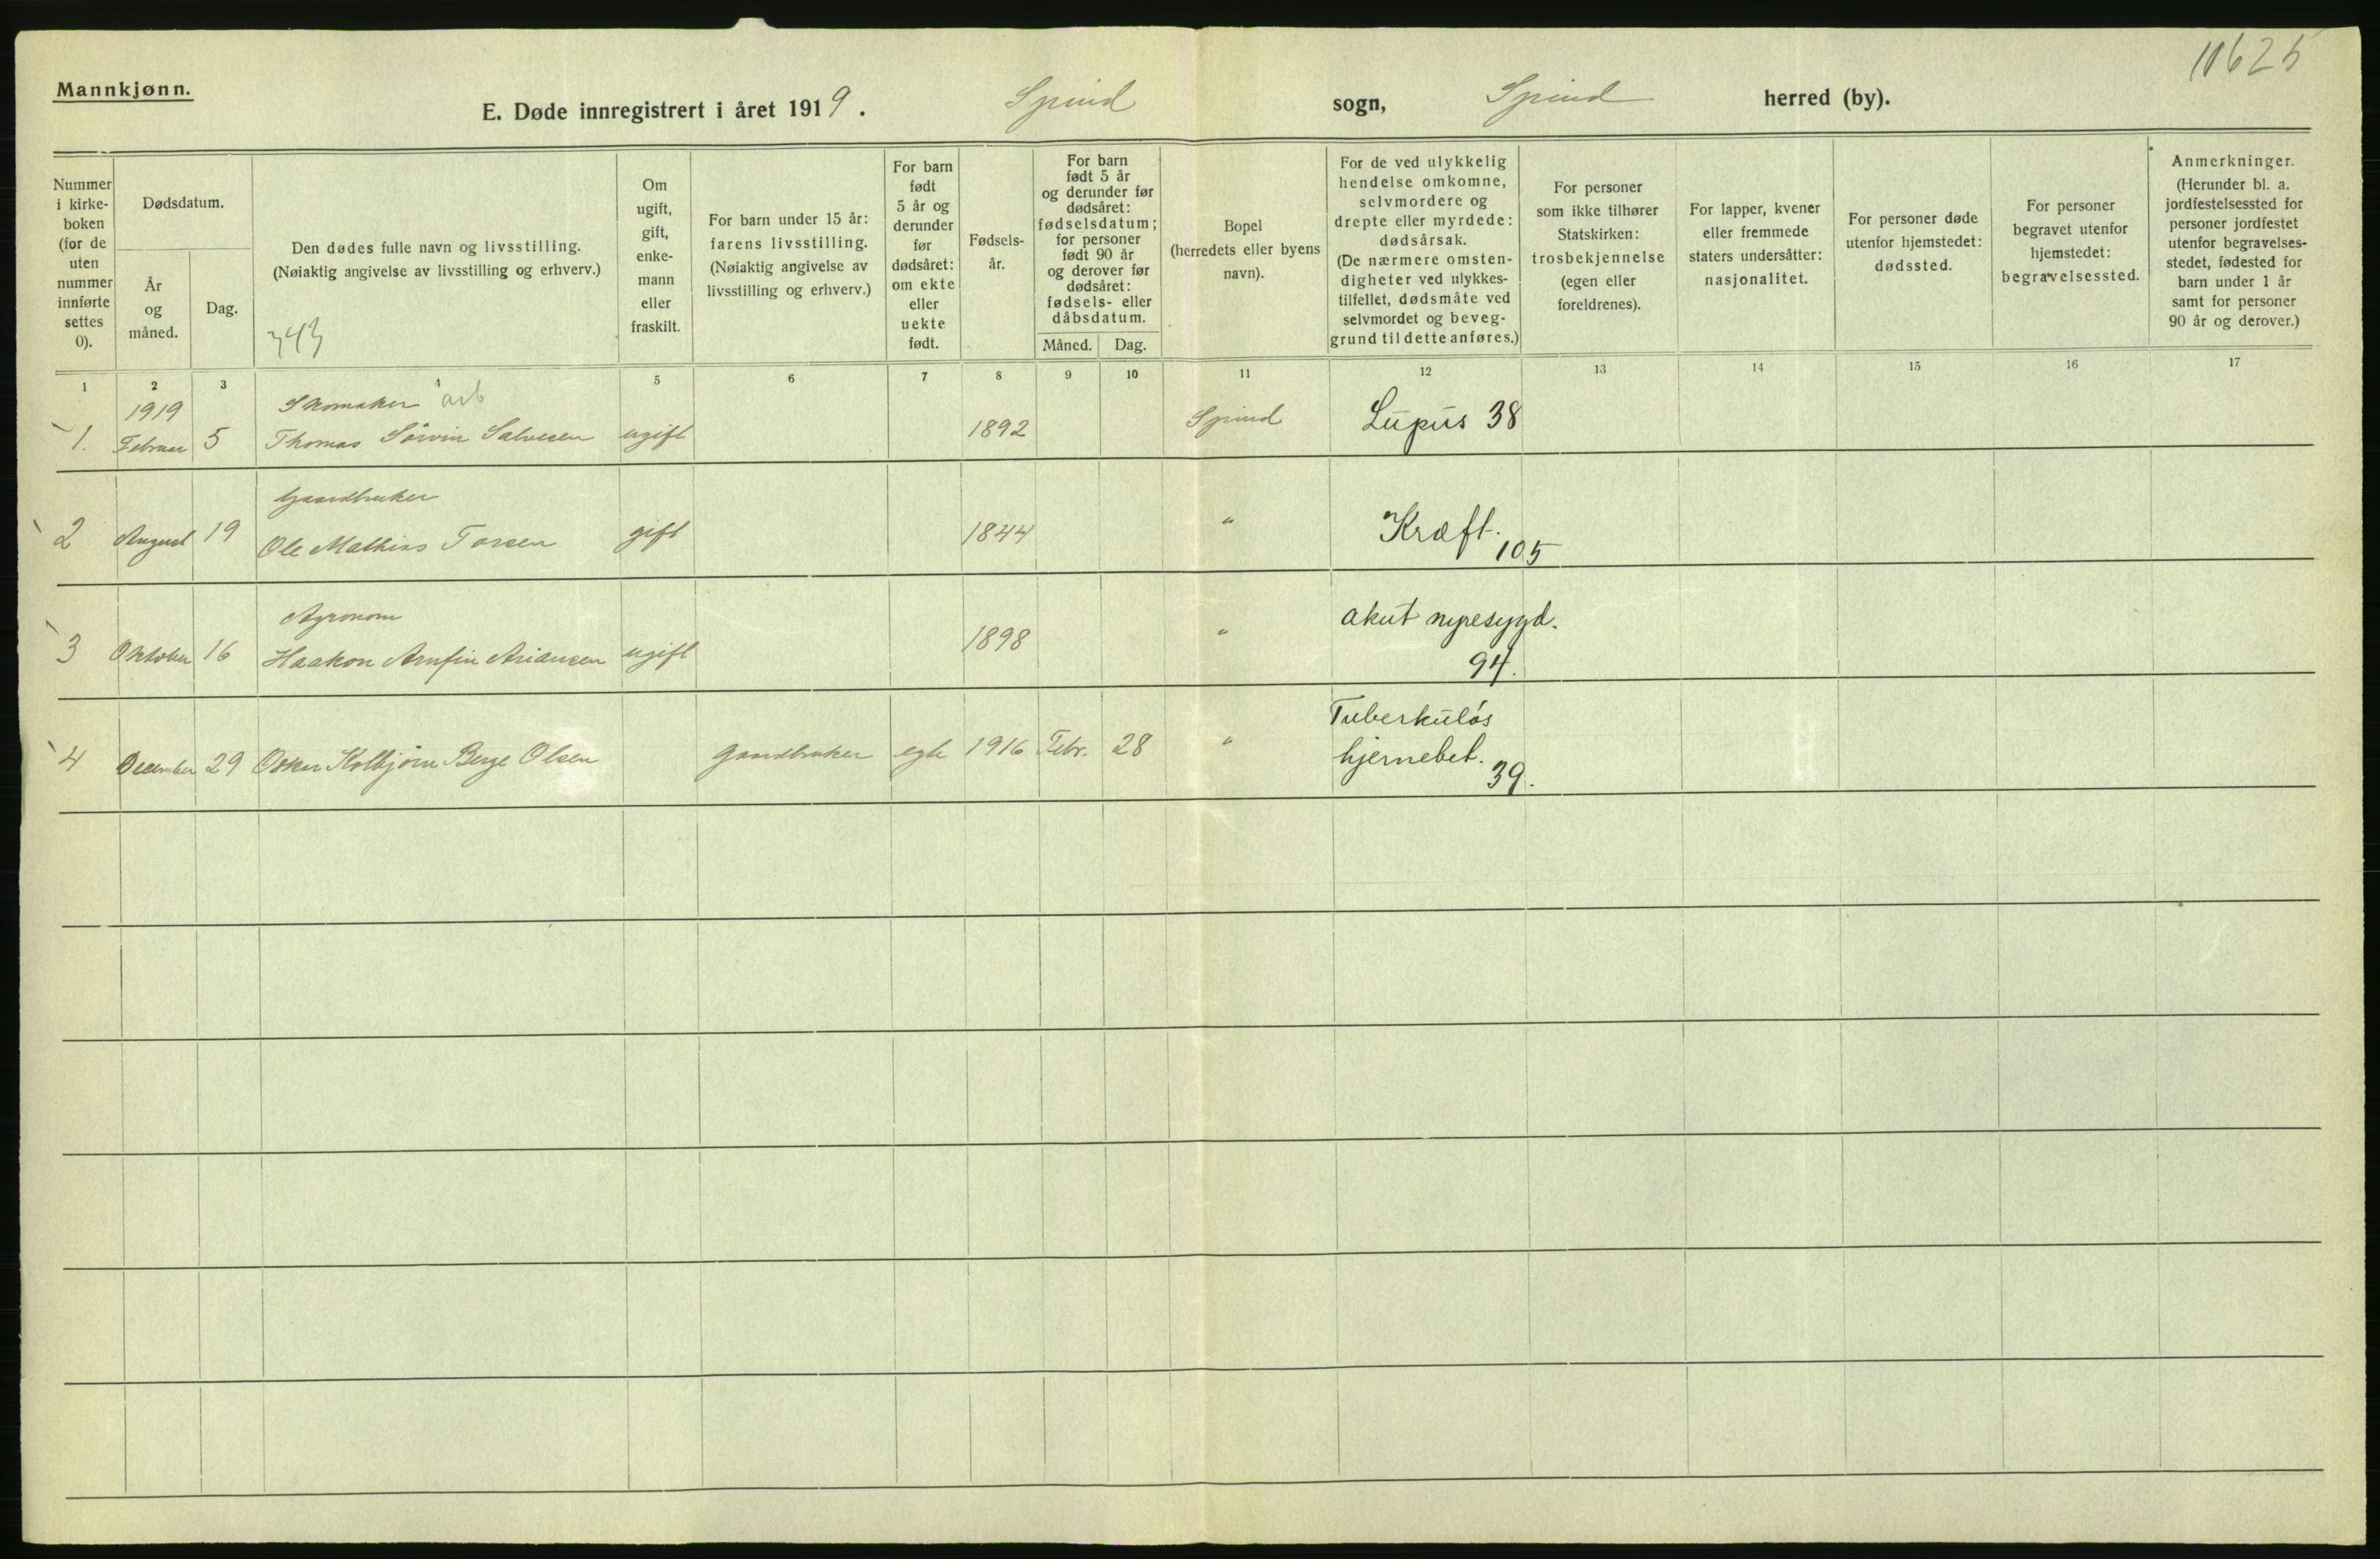 11625
Mannkjønn.
E. Døde innregistrert i året 1919. Spind sogn, Spind herred (by).
Nummer i kirke-boken (for de uten nummer innførte settes 0).
Dødsdatum.
År og måned.
Dag.
Den dødes fulle navn og livsstilling.
(Nøiaktig angivelse av livsstilling og erhverv.)
343
Om ugift, gift, enke-mann eller fraskilt.
For barn under 15 år: farens livsstilling. (Nøiaktig angivelse av livsstilling og erhverv.)
For barn født 5 år og derunder før dødsåret: om ekte eller uekte født.
Fødsels-år.
For barn født 5 år og derunder før dødsåret: fødselsdatum; for personer født 90 år og derover før dødsåret: fødsels- eller dåbsdatum.
Måned. Dag.
Bopel (herredets eller byens navn).
For de ved ulykkelig hendelse omkomne, selvmordere og drepte eller myrdede: dødsårsak. (De nærmere omsten-digheter ved ulykkes-tilfellet, dødsmåte ved selvmordet og beveg-grund til dette anføres.)
For personer som ikke tilhører Statskirken: trosbekjennelse (egen eller foreldrenes).
For lapper, kvener eller fremmede staters undersåtter: nasjonalitet.
For personer døde utenfor hjemstedet: dødssted.
For personer begravet utenfor hjemstedet: begravelsessted.
Anmerkninger. (Herunder bl. a. jordfestelsessted for personer jordfestet utenfor begravelses-stedet, fødested for barn under 1 år samt for personer 90 år og derover.)
1 2 3 4 5 6 7 8 9 10 11 12 13 14 15 16 17
1919 Skomaker arb
1. Februar 5 Thomas Sørvin Salvesen ugift 1892 Spind Lupus 38
Gaardbruker
2 August 19 Ole Mathias Torsen gift 1844 " Kræft. 105
Agronom
3 Oktober 16 Haakon Arnfin Ariansen ugift 1898 " akut nyresygd.
94.
Tuberkuløs
4 December 29 Oskar Kolbjørn Berge Olsen gaardbruker egte 1916 Febr. 28 " hjernebet.
39.